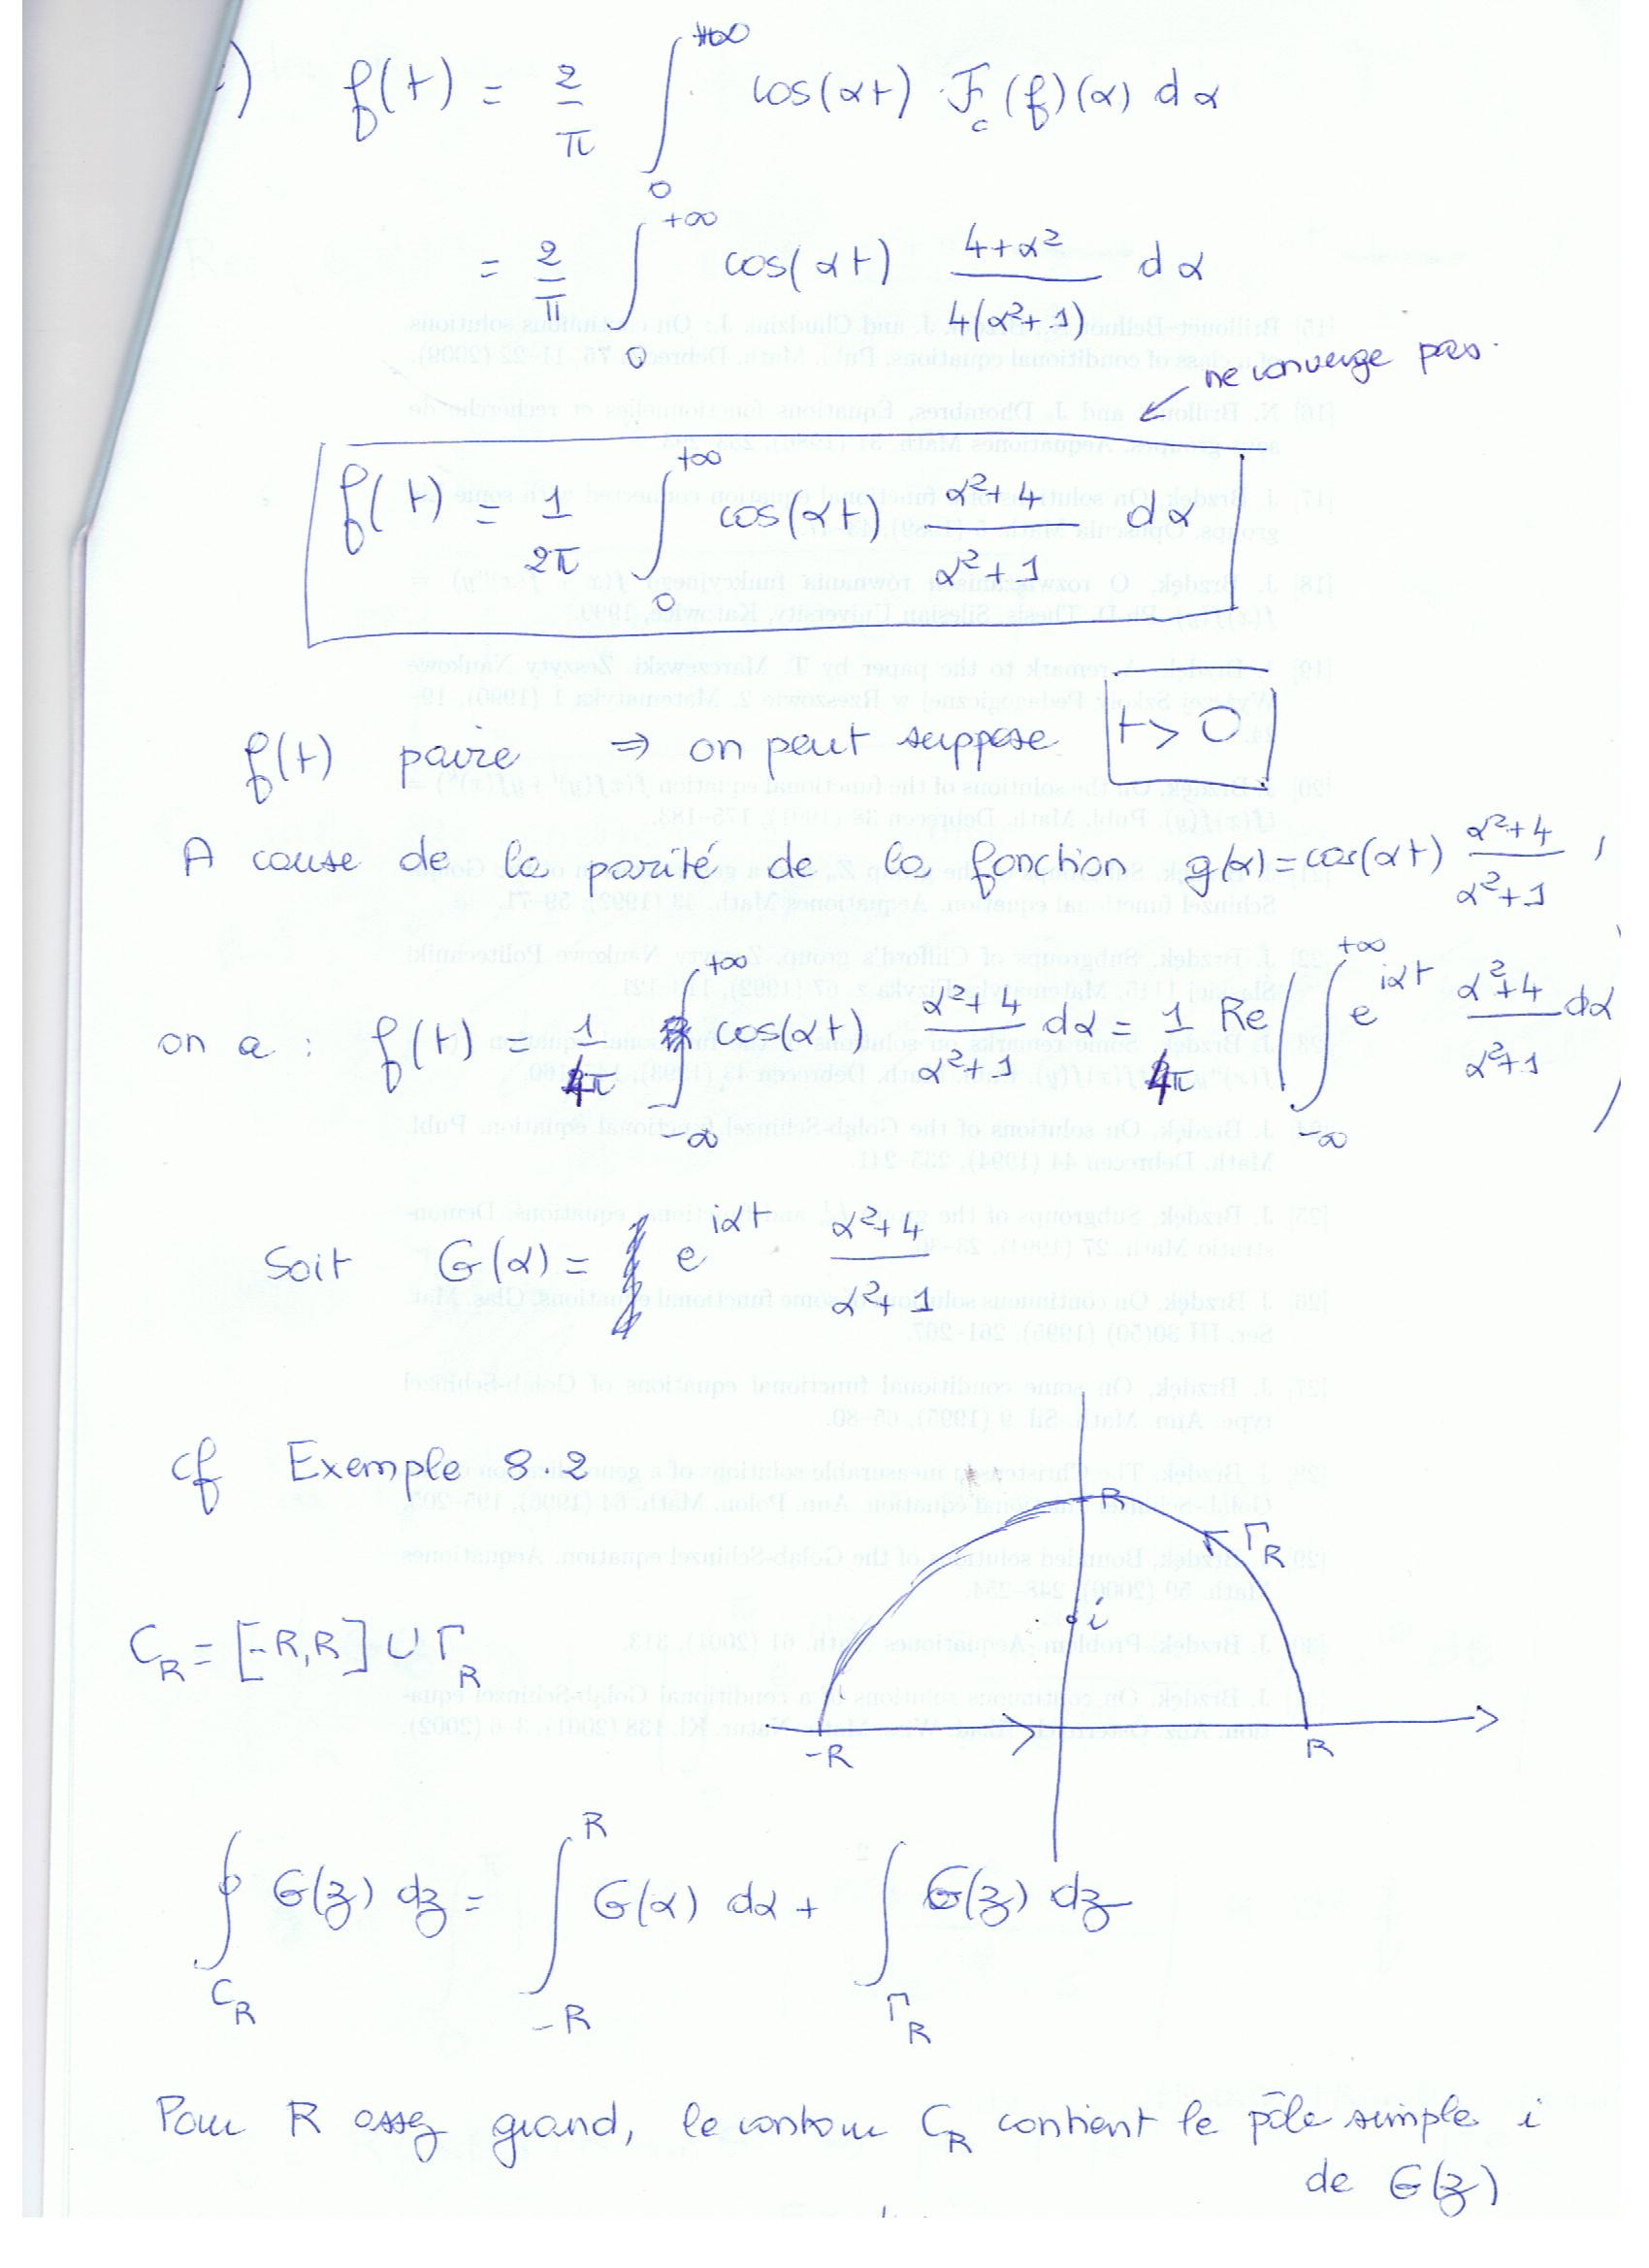 ) f(t) = 2/π ∫_0^{+∞} cos(αt) F_c(f)(α) dα
= 2/π ∫_0^{+∞} cos(αt) (4+α²)/(4(α²+1)) dα
ne converge pas.
f(t) = 1/(2π) ∫_0^{+∞} cos(αt) (α²+4)/(α²+1) dα
f(t) paire ⇒ on peut suppose t > 0
A cause de la parité de la fonction g(α) = cos(αt) (α²+4)/(α²+1),
on a : f(t) = 1/(4π) ∫_{-∞}^{+∞} cos(αt) (α²+4)/(α²+1) dα = 1/(4π) Re(∫_{-∞}^{+∞} e^{iαt} (α²+4)/(α²+1) dα)
Soit G(α) = e^{iαt} (α²+4)/(α²+1)
cf Exemple 8.2
R
Γ_R
i
C_R = [-R,R] ∪ Γ_R
-R R
∮_{C_R} G(z) dz = ∫_{-R}^{R} G(α) dα + ∫_{Γ_R} G(z) dz
Pour R assez grand, le contour C_R contient le pôle simple i
de G(z)